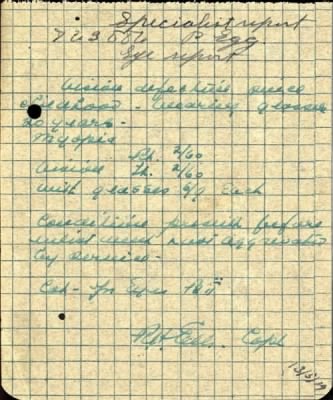 Specialist report
723551 P. Egg
Eye report
Vision defective since
childhood - Wearing glasses
20 years -
Myopia
Rt. 2/60
Vision Lt. 2/60
with glasses 6/9 Each
Condition present before
enlistment not aggravated
by service -
Cat - for eyes Bii
Capt
13/5/19